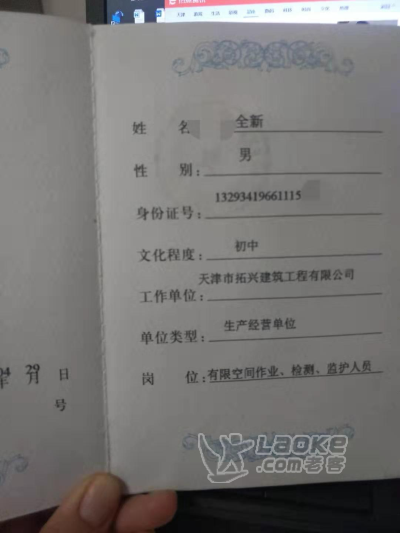 姓 名 全新
性 别: 男
身份证号: 13293419661115
文化程度: 初中
工作单位: 天津市拓兴建筑工程有限公司
单位类型: 生产经营单位
岗 位: 有限空间作业、检测、监护人员
04 29
年 月 日
号
LAOKE
.com老客